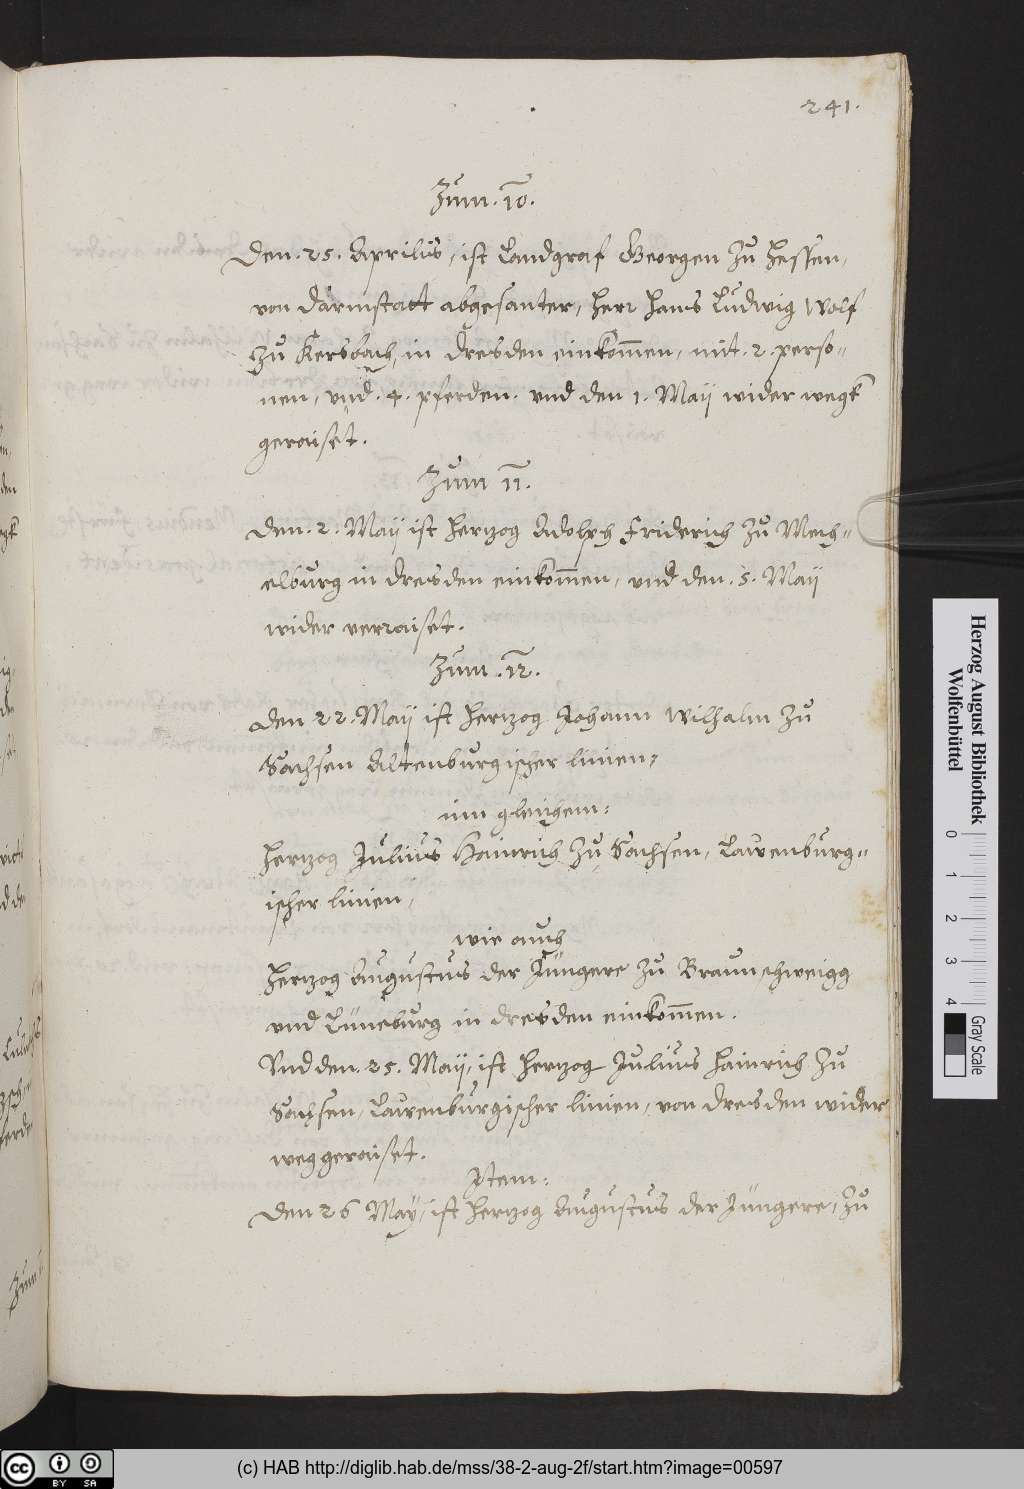 241.
Zum. 10.
Den. 25. Aprilis, ist Landgraf Georgen Zu Hessen,
von Darmstatt abgesanter, Herr Hans Ludwig Wolf
Zu Kersbach, in Dresden einkommen, mit. 2. perso=
nen, vnd. 4. pferden. vnd den 1. Maij wider wegk
geraiset.
Zum 11.
Den. 2. Maij ist Hertzog Adolph Friderich Zu Mech=
elburg in Dresden einkommen, vnd den. 5. Maij
wider verraiset.
Zum. 12.
Den 22. Maij ist Hertzog Johann Wilhalm Zu
Sachsen Altenburgischer linien,
inn gleichem:
Hertzog Julius Hainrich Zu Sachsen, Lauenburg=
ischer linien,
wie auch
Hertzog Augustus der Jüngere Zu Braunschweigg
vnd Lüneburg in Dresden einkommen.
Vnd den. 25. Maij, ist Hertzog Julius Hainrich Zu
Sachsen, Laurenburgischer linien, von Dresden wider
weggeraiset.
Item:
Den 26 May, ist Hertzog Augustus der Jüngere, Zu
Herzog August Bibliothek
Wolfenbüttel
0 1 2 3 4
Gray Scale
CC BY SA
(c) HAB http://diglib.hab.de/mss/38-2-aug-2f/start.htm?image=00597